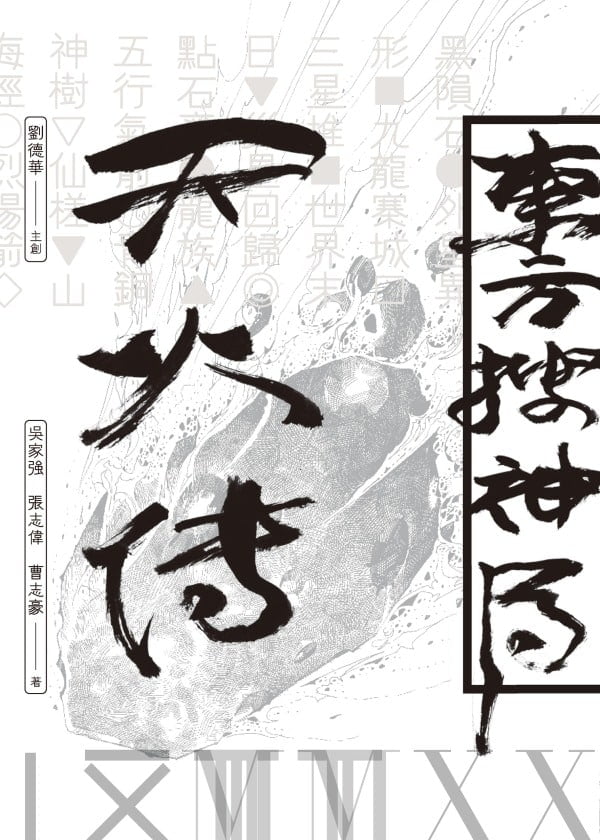 東方搜神局
天火傳
劉德華——主創
吳家强 張志偉 曹志豪——著
黑隕石●外星異
形■九龍寨城□
三星堆■世界末
日▼里回歸◎
點石 龍族▲
五行氣 銅
神樹▽仙槎▼山
海經○烈陽 ◇